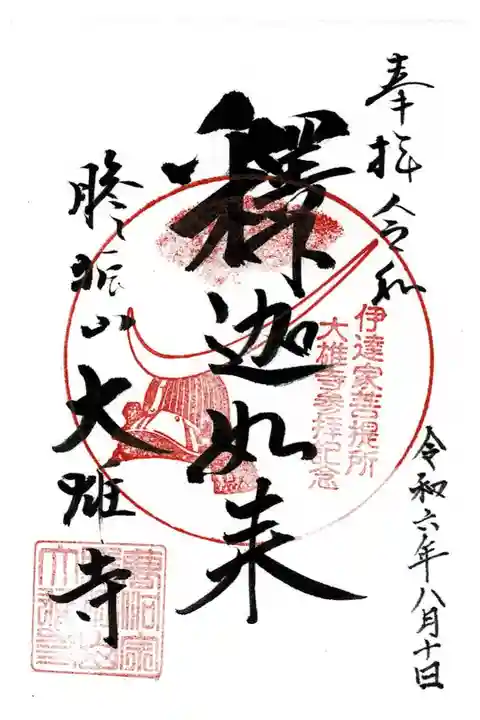 奉拝 令和
令和六年八月十日
伊達家菩提所
大雄寺参拝記念
釋迦如来
山 大雄寺